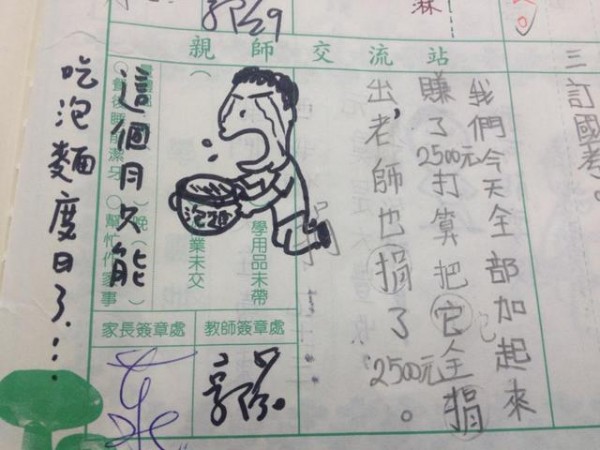 親師交流站
三訂國考。
我們今天全部加起來
賺了2500元打算把它全捐
出,老師也捐了2500元。
泡麵
這個月只能
吃泡麵度日了...
學用品未帶
業未交
○餐後睡前潔牙
○幫忙作家事
家長簽章處
教師簽章處